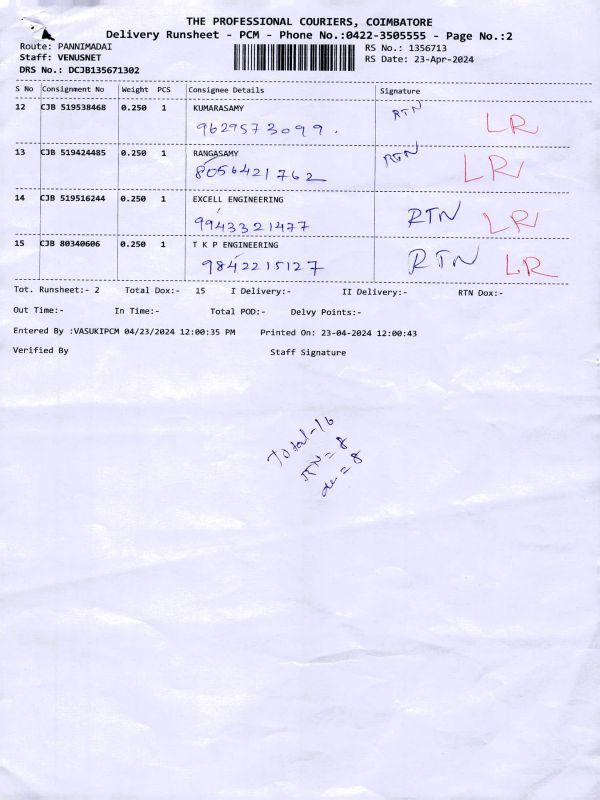 THE PROFESSIONAL COURIERS, COIMBATORE
Delivery Runsheet - PCM - Phone No.:0422-3505555 - Page No.:2
Route: PANNIMADAI RS No.: 1356713
Staff: VENUSNET RS Date: 23-Apr-2024
DRS No.: DCJB135671302
S No Consignment No Weight PCS Consignee Details Signature
12 CJB 519538468 0.250 1 KUMARASAMY RTN LR
9629573099.
13 CJB 519424485 0.250 1 RANGASAMY RTN LR
8056421762
14 CJB 519516244 0.250 1 EXCELL ENGINEERING RTN LR
9943321477
15 CJB 80340606 0.250 1 T K P ENGINEERING RTN LR
9842215127
Tot. Runsheet:- 2 Total Dox:- 15 I Delivery:- II Delivery:- RTN Dox:-
Out Time:- In Time:- Total POD:- Delvy Points:-
Entered By :VASUKIPCM 04/23/2024 12:00:35 PM Printed On: 23-04-2024 12:00:43
Verified By Staff Signature
Total-16
RTN = 8
de = 8